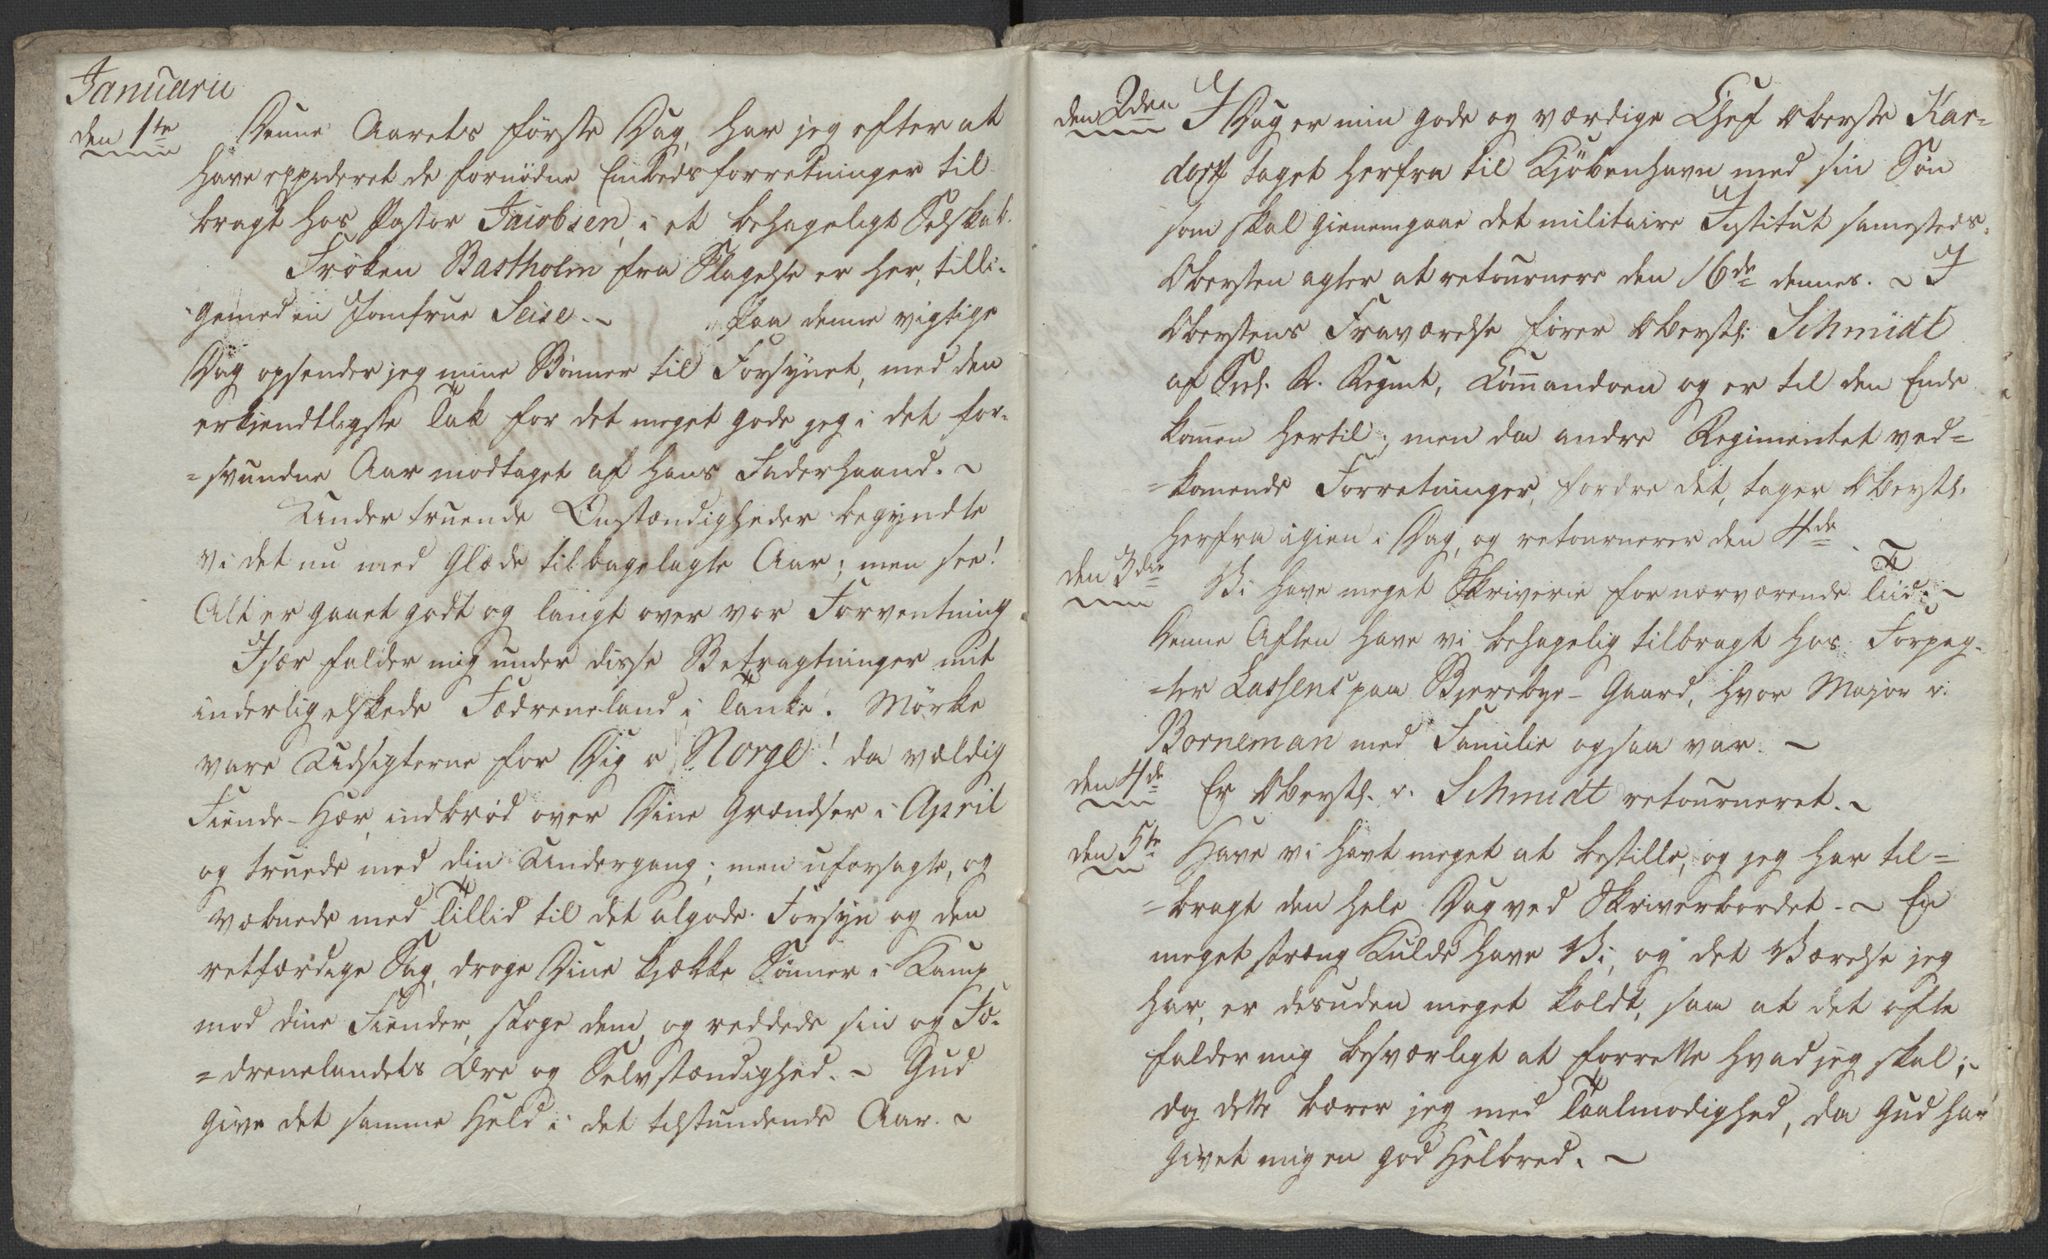 Januarii
den 1te Denne Aarets første Dag, har jeg efter at
have expederet de fornødne Embedsforretninger til
bragt hos Pastor Jacobsen, i et behageligt Selskab.
Frøken Bastholm fra Slagelse er her, tilli-
gemed en Jomfrue Seise. ~ Paa denne vigtige
Dag opsender jeg mine Bønner til Forsynet, med den
erkjendtligste Tak for det meget gode jeg i det for-
=svundne Aar modtaget af hans Faderhaand. ~
Under truende Omstændigheder begyndte
vi det nu med Glæde tilbagelagte Aar; men see!
Alt er gaaet godt og langt over vor Forventning
Især falder mig under disse Betragtninger mit
inderligelskede Fædreneland i Tanke! Mörke
vare Udsigterne for Dig o Norge! da vældig
Fiende-Hær, indbrød over Dine Grændser i April
og truede med din Undergang; men uforsagte, og
væbnede med Tillid til det algode Forsyn og den
retfærdige Sag, droge Dine kjække Sønner i Kamp
mod dine Fiender, sloge dem, og reddede sin og Fæ-
=drenelandets Ære og Selvstændighed. ~ Gud
give det samme Held i det tilstundende Aar. ~
den 2den I Dag er min gode og værdige Chef Oberste Kar-
dorff taget herfra til Kjöbenhavn med sin Søn
som skal gienemgaae det militaire Institut samesteds.
Obersten agter at retournere den 16de dennes. ~ I
Oberstens Fraværelse fører Oberstl: Schmidt
af R. Regmt, Comandoen og er til den Ende
komen hertil; men da andre Regimentet ved=
=komende Forretninger, fordre det, tager Oberstl.
herfra igien i Dag, og retournerer den 4de.
den 3die Vi have meget Skriverie for nærværende Tiid. ~
Denne Aften have vi behagelig tilbragt hos Forpag-
=ter Lassens paa Bjerebye-Gaard, hvor Major v.
Borneman med Familie ogsaa var. ~
den 4de Er Oberstl. v. Schmidt retourneret. ~
den 5te Have vi havt meget at bestille, og jeg har til=
=bragt den hele Dag ved Skriverbordet. ~ En
meget stræng Kulde have Vi, og det Værelse jeg
har, er desuden meget koldt, saa at det ofte
falder mig besværligt at forrette hvad jeg skal;
dog dette bærer jeg med Taalmodighed, da Gud har
givet mig en god Helbred. ~